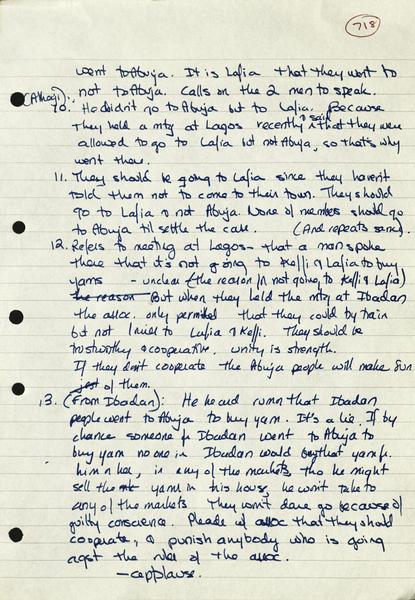 718
went to Abuja. It is Lafia that they went to
not to Abuja. Calls on the 2 men to speak.
(Alhaji):
10. He didn't go to Abuja but to Lafia. Because
They held a mtg at Lagos recently & said that they were
allowed to go to Lafia but not Abuja, so that's why
went there.
11. They should be going to Lafia since they haven't
told them not to come to their town. They should
go to Lafia & not Abuja. None of members should go
to Abuja til settle the case. (And repeats same).
12. Refers to meeting at Lagos - that a man spoke
there that it's not going to Keffi & Lafia to buy
yams - unclear (the reason for not going to Keffi & Lafia)
the reason But when they held the mtg at Ibadan
the assoc. only permitted that they could by train
but not to Lafia & Keffi. They should be
trustworthy & cooperative. Unity is strength.
If they don't cooperate the Abuja people will make fun
of them.
13. (From Ibadan): He heard rumor that Ibadan
people went to Abuja to buy yam. It's a lie. If by
chance someone fr Ibadan went to Abuja to
buy yam no one in Ibadan would buy that yam fr.
him or her, in any of the markets, tho he might
sell the yam in his house, he won't take to
any of the markets. They won't dare go because of
guilty conscience. Pleads w/ assoc that they should
cooperate, & punish anybody who is going
agst the rules of the assoc.
- applause.